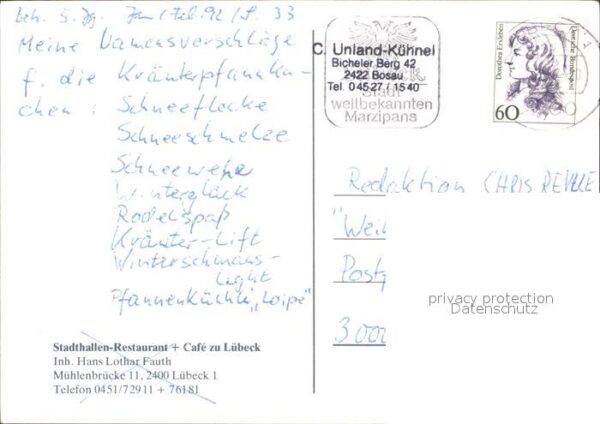 betr. 5. Jg. Jan/Feb. 92 / S. 33
Meine Namensvorschläge
f. die Kräuterpfannku-
chen: Schneeflocke
Schneeschmelze
Schneewehe
Winterglück
Rodelspaß
Kräuter-Lift
Winterschmaus-
light
Pfannenküchli „Loipe"
Stadthallen-Restaurant + Café zu Lübeck
Inh. Hans Lothar Fauth
Mühlenbrücke 11, 2400 Lübeck 1
Telefon 0451/72911 + 76181
C. Unland-Kühnel
Bicheler Berg 42
2422 Bosau
Tel. 04527 / 1540
Stadt
weltbekannten
Marzipans
Dorothea Erxleben
Deutsche Bundespost
60
Redaktion CHRIS REVUE
"Weih
Postf
3000
privacy protection
Datenschutz